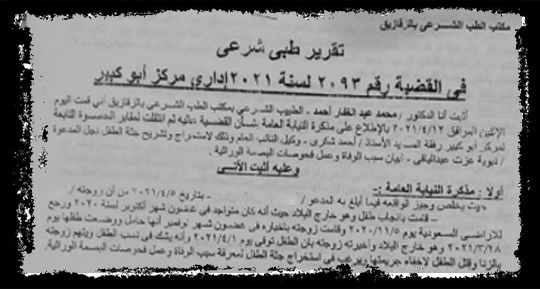 مكتب الطب الشرعى بالزقازيق
تقرير طبى شرعى
فى القضية رقم ٢٠٩٣ لسنة ٢٠٢١ إدارى مركز أبو كبير
أثبت أنا الدكتور / محمد عبد الغفار أحمد - الطبيب الشرعى بمكتب الطب الشرعى بالزقازيق أنى قمت اليوم
الإثنين الموافق ٢٠٢١/٤/١٢ بالإطلاع على مذكرة النيابة العامة بشأن القضية عاليه ثم انتقلت لمقابر
لمركز أبو كبير رفقة السيد الأستاذ / أحمد شكرى - وكيل النائب العام وذلك لاستخراج وتشريح جثة الطفل نجل المدعوة
/ عزت عبدالباقى - لبيان سبب الوفاة وعمل فحوصات البصمة الوراثية .
وعليه أثبت الآتى
أولا : مذكرة النيابة العامة :-
حيث يخلص وجيز الواقعة فيما أبلغ به المدعو / - بتاريخ ٢٠٢١/٤/٥ من أن زوجته /
- قامت بانجاب طفل وهو خارج البلاد حيث أنه كان متواجد فى غضون شهر أكتوبر لسنة ٢٠٢٠ ورجع
للاراضى السعودية يوم ٢٠٢٠/١١/٥ وقامت زوجته باخباره فى غضون شهر نوفمبر أنها حامل ووضعت طفلها يوم
٢٠٢١/٣/٢٨ وهو خارج البلاد وأخبرته زوجته بان الطفل توفى يوم ٢٠٢١/٤/١ وأنه يشك فى نسب الطفل ويتهم زوجته
بالزنا وقتل الطفل لإخفاء جريمتها ويرغب فى استخراج جثة الطفل لمعرفة سبب الوفاة وعمل فحوصات البصمة الوراثية.